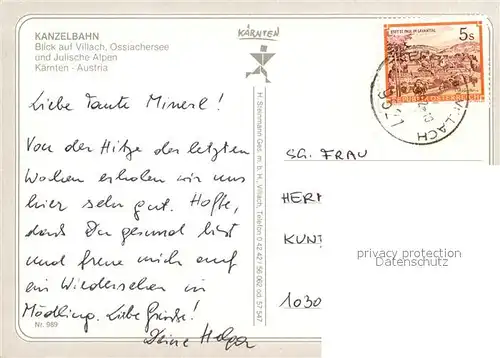 KANZELBAHN
Blick auf Villach, Ossiachersee
und Julische Alpen
Kärnten - Austria
KÄRNTEN
5s
STIFT ST. PAUL IM LAVANTTAL
REPUBLIK ÖSTERREICH
9521
VILLACH
Liebe Tante Minerl!
Von der Hitze der letzten
Wochen erholen wir uns
hier sehr gut. Hoffe,
dass Du gesund bist
und freue mich auf
ein Wiedersehen in
Mödling. Liebe Grüsse!
Deine Helga
Nr. 989
H. Steinmann Ges. m. b. H., Villach, Telefon 0 42 42 / 56 062 od. 57 547
SG. FRAU
HERM
KUNT
1030
privacy protection
Datenschutz